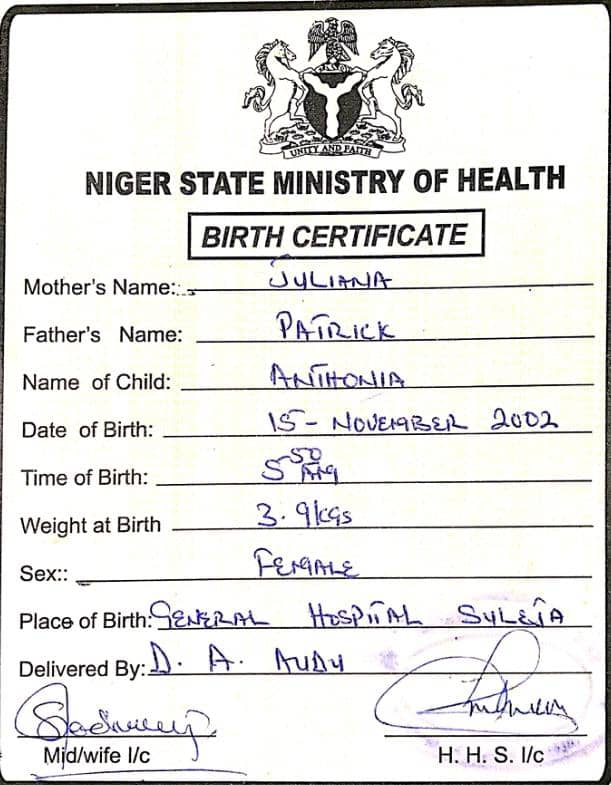 UNITY AND FAITH
NIGER STATE MINISTRY OF HEALTH
BIRTH CERTIFICATE
Mother's Name: JULIANA
Father's Name: PATRICK
Name of Child: ANTHONIA
Date of Birth: 15 - NOVEMBER 2002
Time of Birth: 5 50 AM
Weight at Birth 3.9kgs
Sex:: FEMALE
Place of Birth: GENERAL HOSPITAL SULEJA
Delivered By: D. A. AUDU
Mid/wife I/c H. H. S. I/c